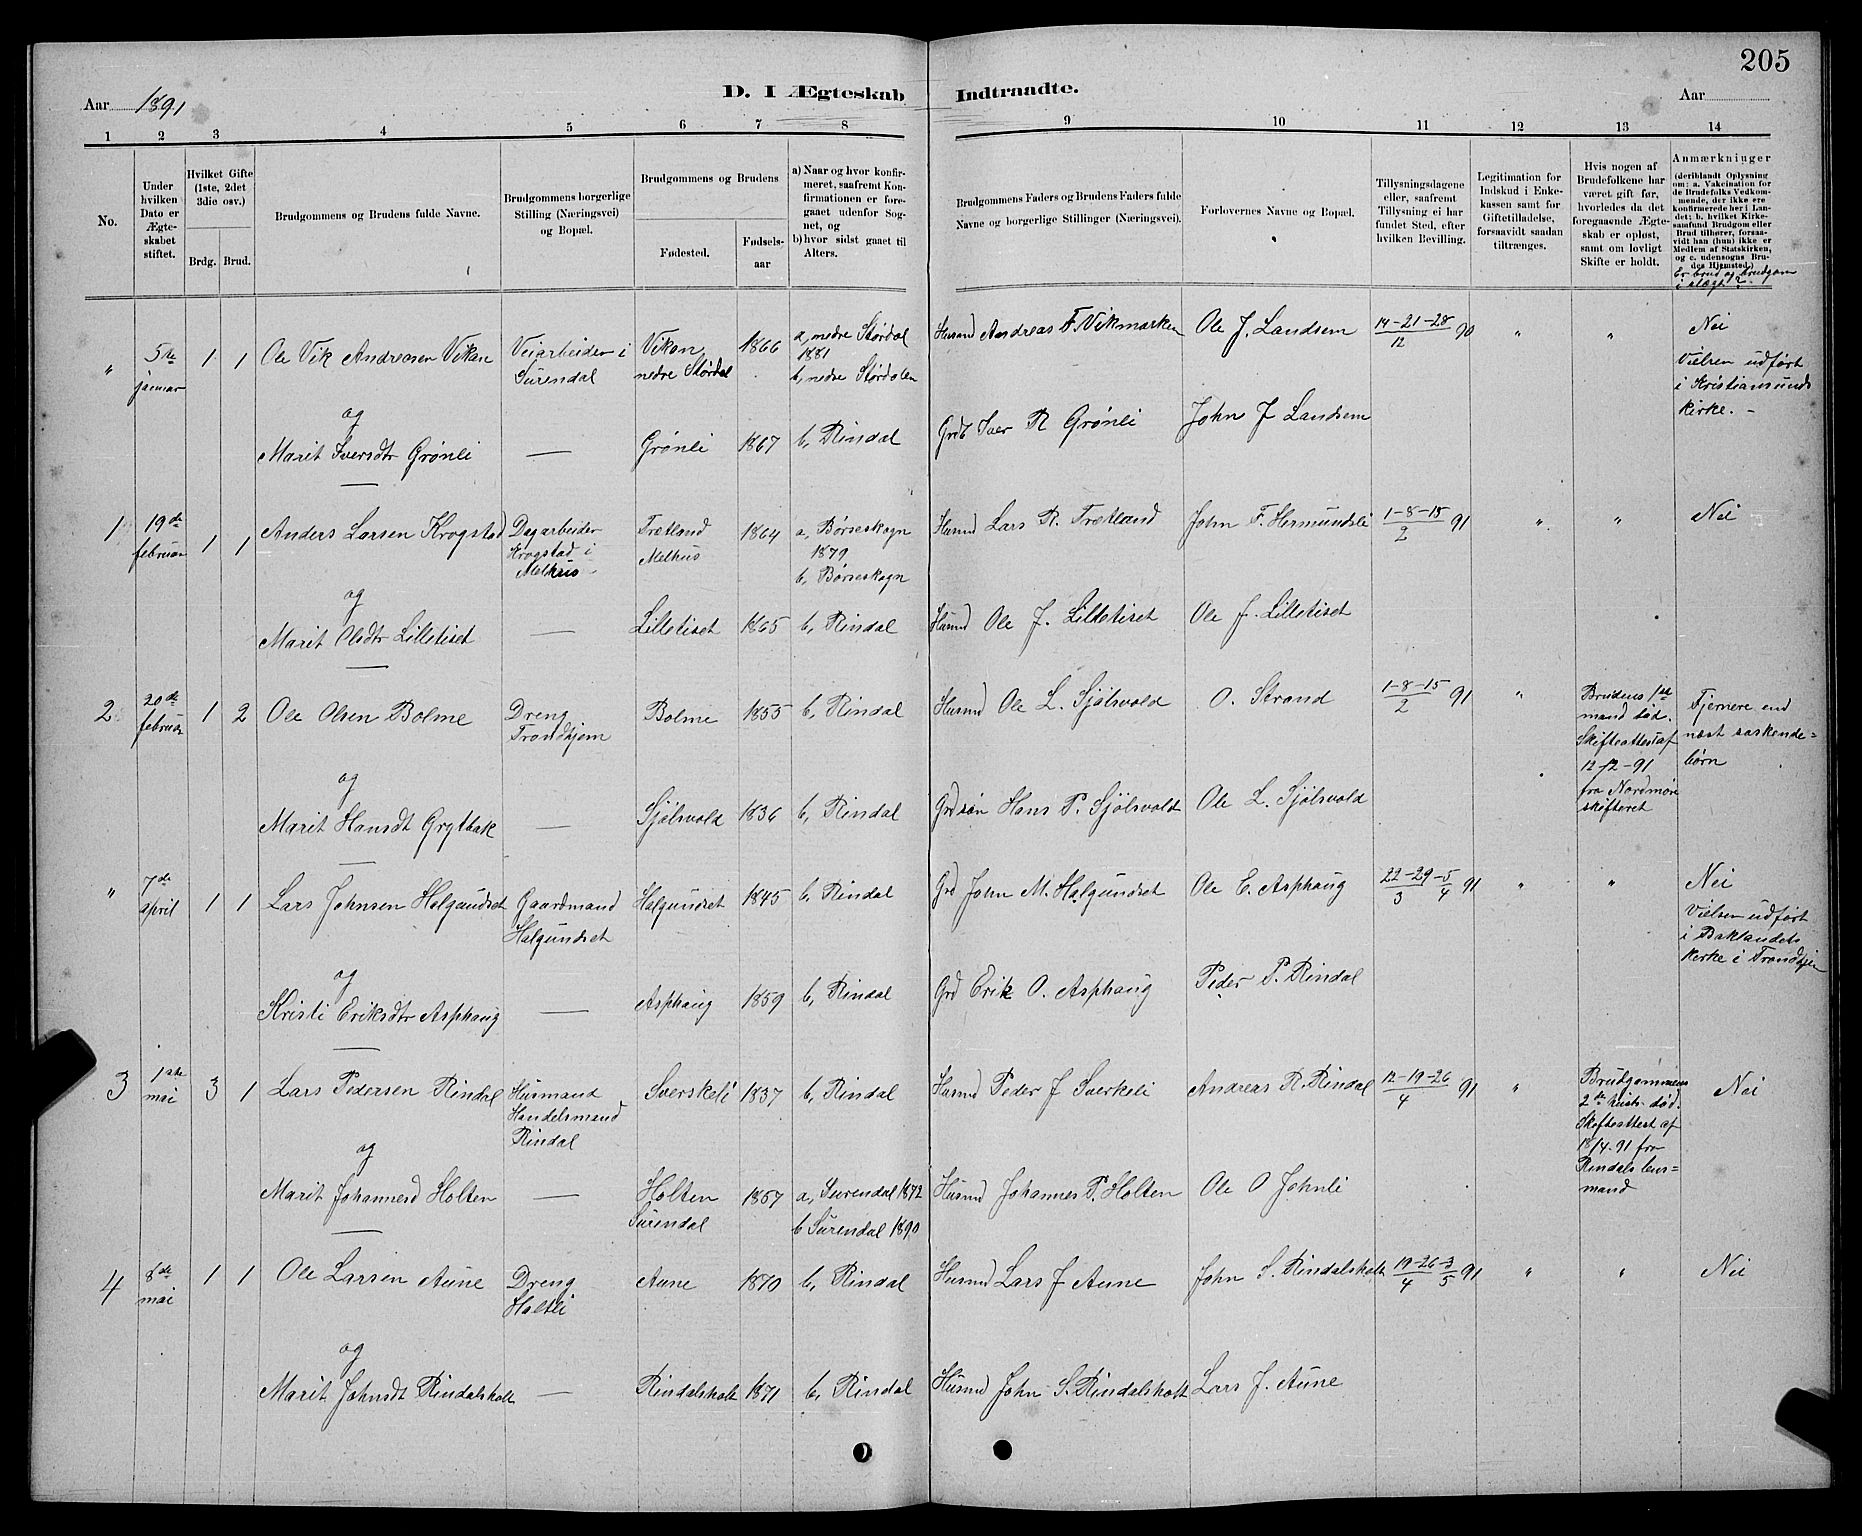 205
Aar 1891
D. I Ægteskab Indtraadte.
Aar
1 2 3 4 5 6 7 8 9 10 11 12 13 14
No.
Under hvilken Dato er Ægteskabet stiftet.
Hvilket Gifte (1ste, 2det 3die osv.)
Brdg. Brud.
Brudgommens og Brudens fulde Navne.
Brudgommens borgerlige Stilling (Næringsvei) og Bopæl.
Brudgommens og Brudens
Fødested.
Fødselsaar
a) Naar og hvor konfirmeret, saafremt Konfirmationen er foregaaet udenfor Sognet, og
b) hvor sidst gaaet til Alters.
Brudgommens Faders og Brudens Faders fulde Navne og borgerlige Stillinger (Næringsvei).
Forlovernes Navne og Bopæl.
Tillysningsdagene eller, saafremt Tillysning ei har fundet Sted, efter hvilken Bevilling.
Legitimation for Indskud i Enkekassen samt for Giftetilladelse, forsaavidt saadan tiltrænges.
Hvis nogen af Brudefolkene har været gift før, hvorledes da det foregaaende Ægteskab er opløst, samt om lovligt Skifte er holdt.
Anmærkninger (deriblandt Oplysning om: a. Vakcination for de Brudefolks Vedkommende, der ikke ere konfirmerede her i Landet; b. hvilket Kirkesamfund Brudgom eller Brud tilhører, forsaavidt han (hun) ikke er Medlem af Statskirken, og c. udensogns Brudes Hjemsted.)
Er brud og brudgom i slægt?
" 5te januar 1 1 Ole Vik Andreasen Vikan Veiarbeider i Surendal Vikan nedre Størdal 1866 a, nedre Størdal 1881 b, nedre Stördalen Husmd Andreas F. Vikmarken Ole J. Landsem 14-21-28/12 90 " " Nei Vielsen udført i Kristiansunds kirke. -
og
Marit Iversdtr Grønli — Grønli 1867 b, Rindal Grdb Iver R Grønli John J Landsem
1 19de februar 1 1 Anders Larsen Krogstad Dagarbeider Krogstad i Melhus Trætland Melhus 1864 a, Børseskogn 1879 b, Børseskogn Husmd Lars R. Trætland John F. Hermundsli 1-8-15/2 91 " " Nei
og
Marit Olsdtr Lilletiset — Lilletiset 1865 b, Rindal Husmd Ole J. Lilletiset Ole J. Lilletiset
2 20de februar 1 2 Ole Olsen Bolme Dreng Trondhjem Bolme 1855 b, Rindal Husmd Ole L. Sjölsvold O. Strand 1-8-15/2 91 " Brudens 1ste mand død. Skifteattest af 12-2-91 fra Nordmøre skifteret Fjernere end næst søskendebörn
og
Marit Hansdt Grytbak — Sjölsvold 1836 b, Rindal Grdsøn Hans P. Sjölsvold Ole L. Sjölsvold
" 7de april 1 1 Lars Johnsen Halgundset Gaardmand Halgundset Halgundset 1845 b, Rindal Grd John M. Halgundset Ole E. Asphaug 22-29/3 -5/4 91 " " Nei Vielsen udført i Baklandets kirke i Trondhjem
og
Kristi Eriksdtr Asphaug — Asphaug 1859 b, Rindal Grd Erik O. Asphaug Peder P. Rindal
3 1ste mai 3 1 Lars Pedersen Rindal Husmand Handelsmand Rindal Sverskeli 1837 b, Rindal Husmd Peder J Sverkeli Andreas R. Rindal 12-19-26/4 91 " Brudgommens 2de hustr. död. Skifteattest af 18/4-91 fra Rindals lensmand Nei
og
Marit Johannesd Holten — Holten Surendal 1857 a, Surendal 1872 b Surendal 1890 Husmd Johannes P. Holten Ole O Johnli
4 8de mai 1 1 Ole Larsen Aune Dreng Holtli Aune 1870 b, Rindal Husmd Lars J Aune John S. Rindalsholt 19-26/4 -3/5 91 " " Nei
og
Marit Johnsdt Rindalsholt — Rindalsholt 1871 b, Rindal Husmd John S. Rindalsholt Lars J. Aune